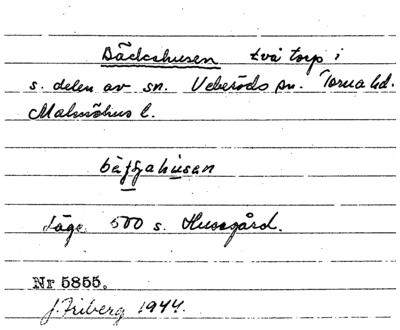 Däckshusen två torp i
s. delen av sn. Veberöds sn. Torna hd.
Malmöhus l.
Läge: 500 s. Husagård.
Nr 5855.
J. Friberg 1944.